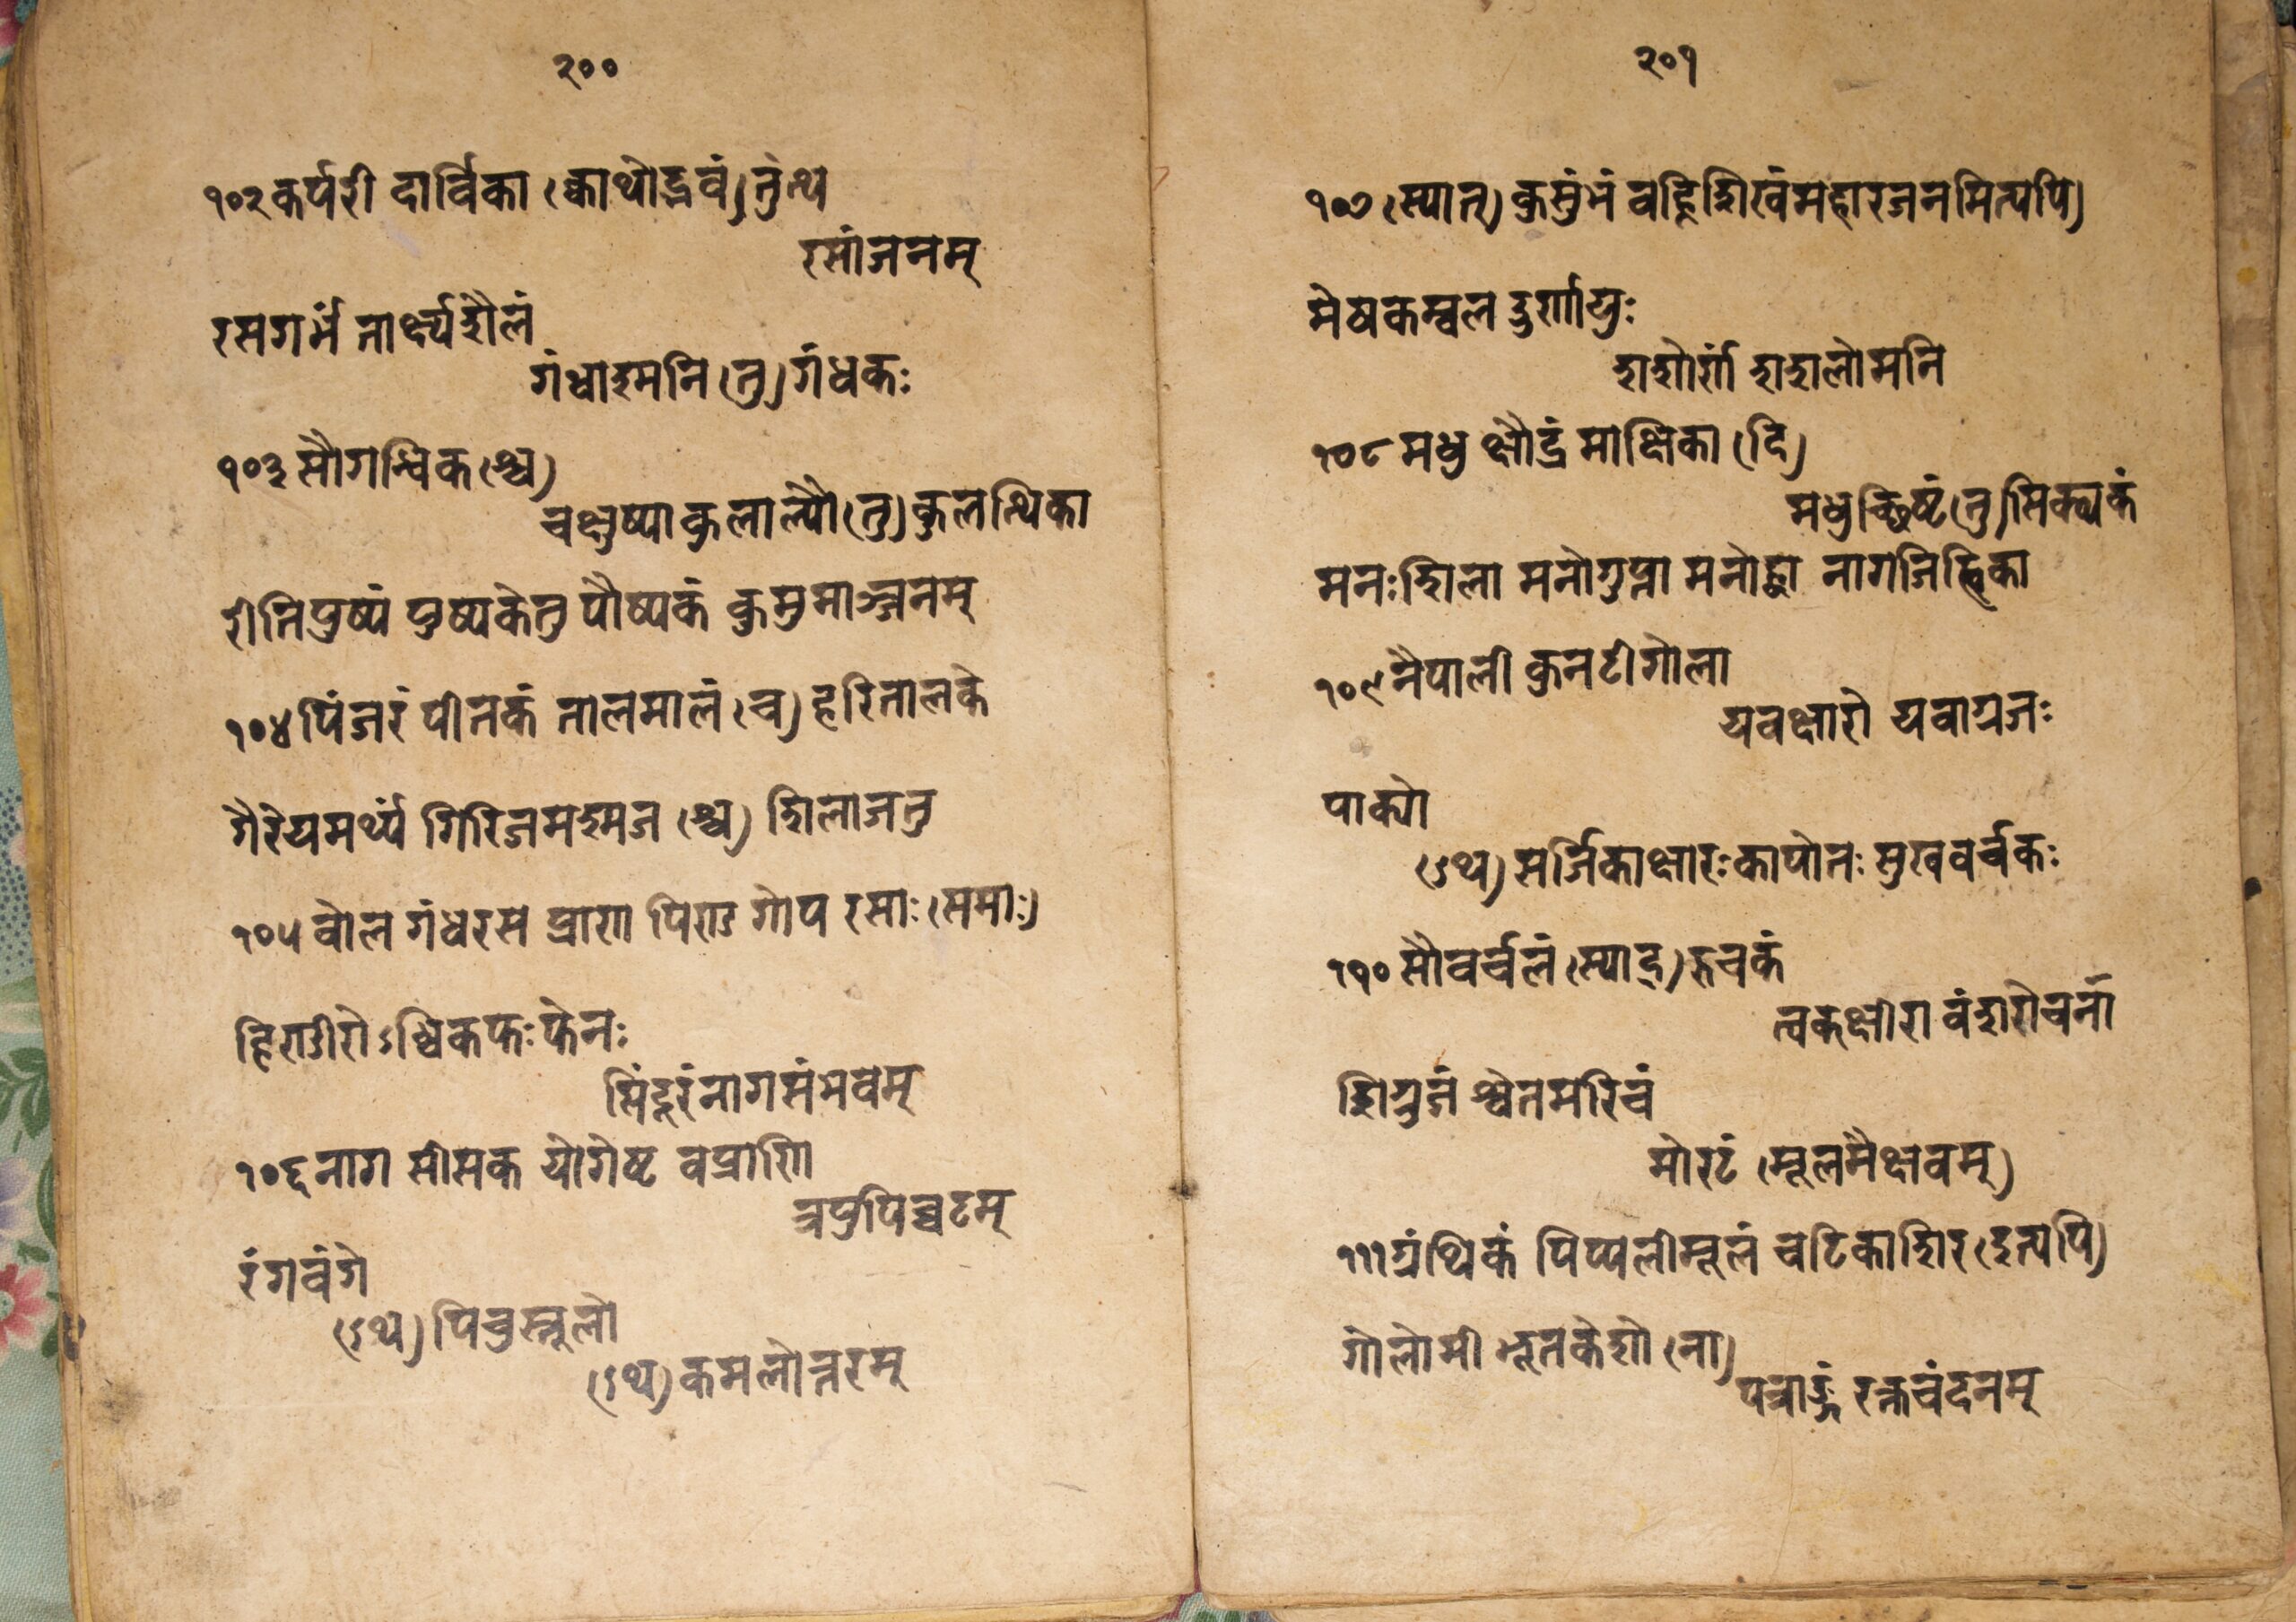 २००
१०२ कर्परी दार्विका (क्वाथोद्भवं) तुत्थ
रसांजनम्
रसगर्भं तार्क्ष्यशैलं
गंधाश्मनि (तु) गंधकः
१०३ सौगन्धिक (श्च)
चक्षुष्याकुलाल्यौ (तु) कुलत्थिका
रीतिपुष्पं पुष्पकेतु पौष्पकं कुसुमाञ्जनम्
१०४ पिंजरं पीतकं तालमालं (च) हरितालके
गैरेयमर्थ्यं गिरिजमश्मज (श्च) शिलाजतु
१०५ वोल गंधरस प्राण पिण्ड गोप रसाः (समाः)
हिण्डीरोऽब्धिकफः फेनः
सिंदूरं नागसंभवम्
१०६ नाग सीसक योगेष्ट वप्राणि
त्रपुपिच्चटम्
रंगवंगे
(ऽथ) पिचुस्तूलो
(ऽथ) कमलोत्तरम्
२०१
१०७ (स्यात्) कुसुंभं वह्निशिखं महारजनमित्यपि)
मेषकम्बल दुर्णायुः
शशोर्णं शशलोमनि
१०८ मधु क्षौद्रं माक्षिका (दि)
मधुच्छिष्टं (तु) सिक्थकं
मनःशिला मनोगुप्ता मनोह्वा नागजिह्विका
१०९ नैपाली कुनटी गोला
यवक्षारो यवाग्रजः
पाक्यो
(ऽथ) सर्जिकाक्षारः कापोतः सुखवर्चकः
११० सौवर्चलं (स्याद्) रुचकं
त्वक्क्षीरा वंशरोचना
शिग्रुजं श्वेतमरिचं
मोरटं (मूलमैक्षवम्)
१११ ग्रंथिकं पिप्पलीमूलं चटिकाशिर (इत्यपि)
गोलोमी भूतकेशो (ना)
पत्राङ्गं रक्तचंदनम्